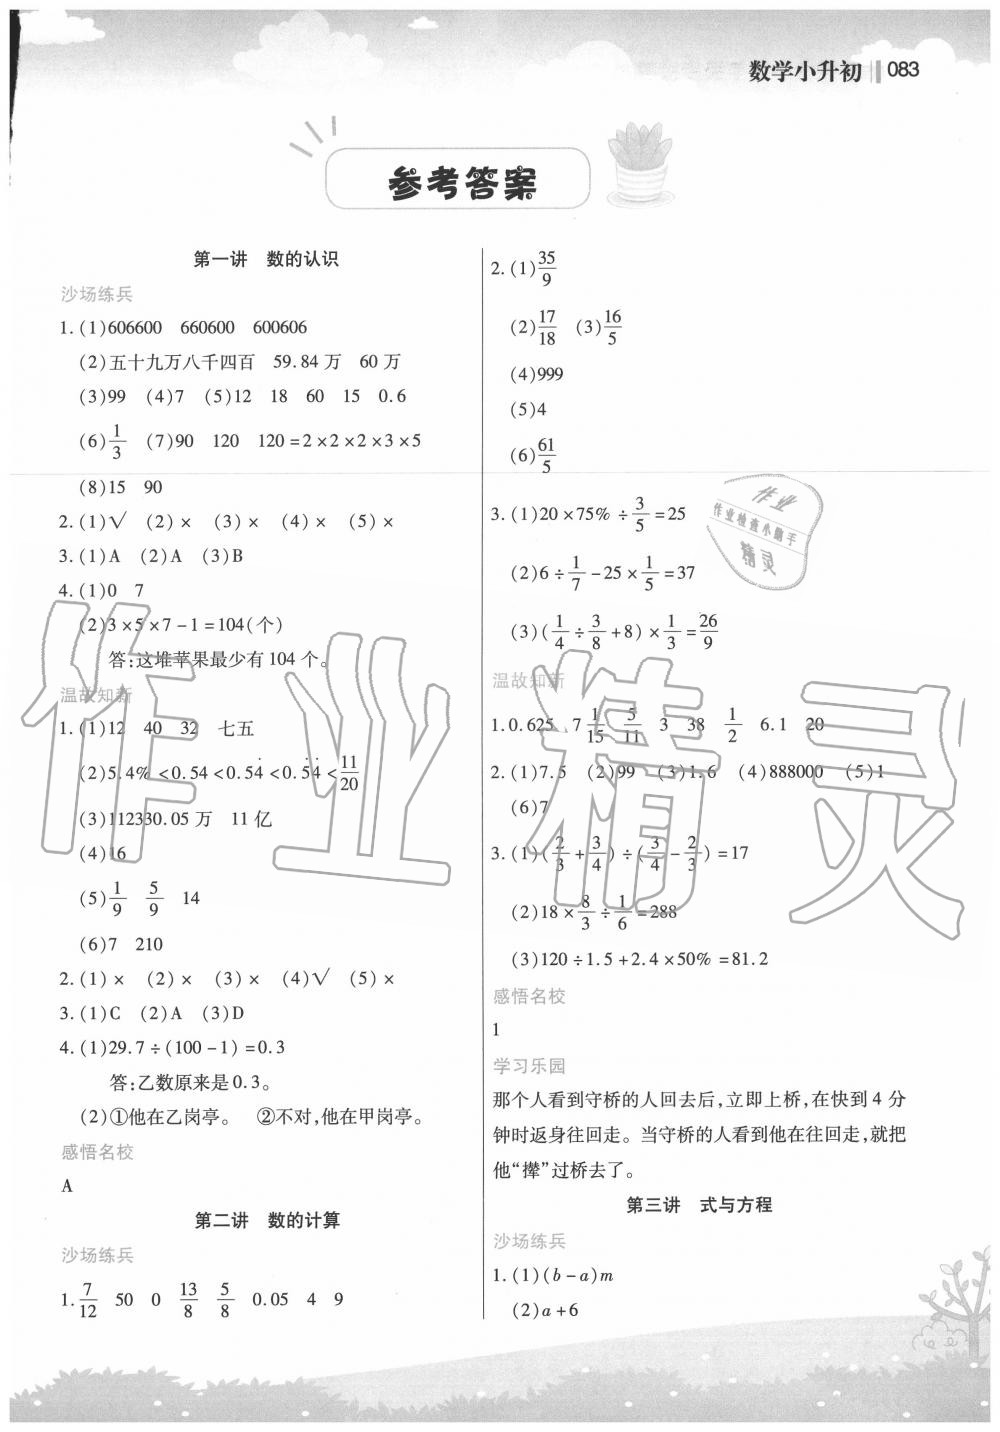 数学小升初 083
参考答案
第一讲 数的认识
沙场练兵
1.(1)606600 660600 600606
(2)五十九万八千四百 59.84万 60万
(3)99 (4)7 (5)12 18 60 15 0.6
(6)1/3 (7)90 120 120=2×2×2×3×5
(8)15 90
2.(1)√ (2)× (3)× (4)× (5)×
3.(1)A (2)A (3)B
4.(1)0 7
(2)3×5×7-1=104(个)
答:这堆苹果最少有104个。
温故知新
1.(1)12 40 32 七五
(2)5.4%<0.54<0.54̇<0.5̇4̇<11/20
(3)112330.05万 11亿
(4)16
(5)1/9 5/9 14
(6)7 210
2.(1)× (2)× (3)× (4)√ (5)×
3.(1)C (2)A (3)D
4.(1)29.7÷(100-1)=0.3
答:乙数原来是0.3。
(2)①他在乙岗亭。 ②不对,他在甲岗亭。
感悟名校
A
第二讲 数的计算
沙场练兵
1.7/12 50 0 13/8 5/8 0.05 4 9
2.(1)35/9
(2)17/18 (3)16/5
(4)999
(5)4
(6)61/5
3.(1)20×75%÷3/5=25
(2)6÷1/7-25×1/5=37
(3)(1/4÷3/8+8)×1/3=26/9
温故知新
1.0.625 7 1/15 5/11 3 38 1/2 6.1 20
2.(1)7.5 (2)99 (3)1.6 (4)888000 (5)1
(6)7
3.(1)(2/3+3/4)÷(3/4-2/3)=17
(2)18×8/3÷1/6=288
(3)120÷1.5+2.4×50%=81.2
感悟名校
1
学习乐园
那个人看到守桥的人回去后,立即上桥,在快到4分
钟时返身往回走。当守桥的人看到他在往回走,就把
他“撵”过桥去了。
第三讲 式与方程
沙场练兵
1.(1)(b-a)m
(2)a+6
作业
作业检查小助手
精灵
作业精灵